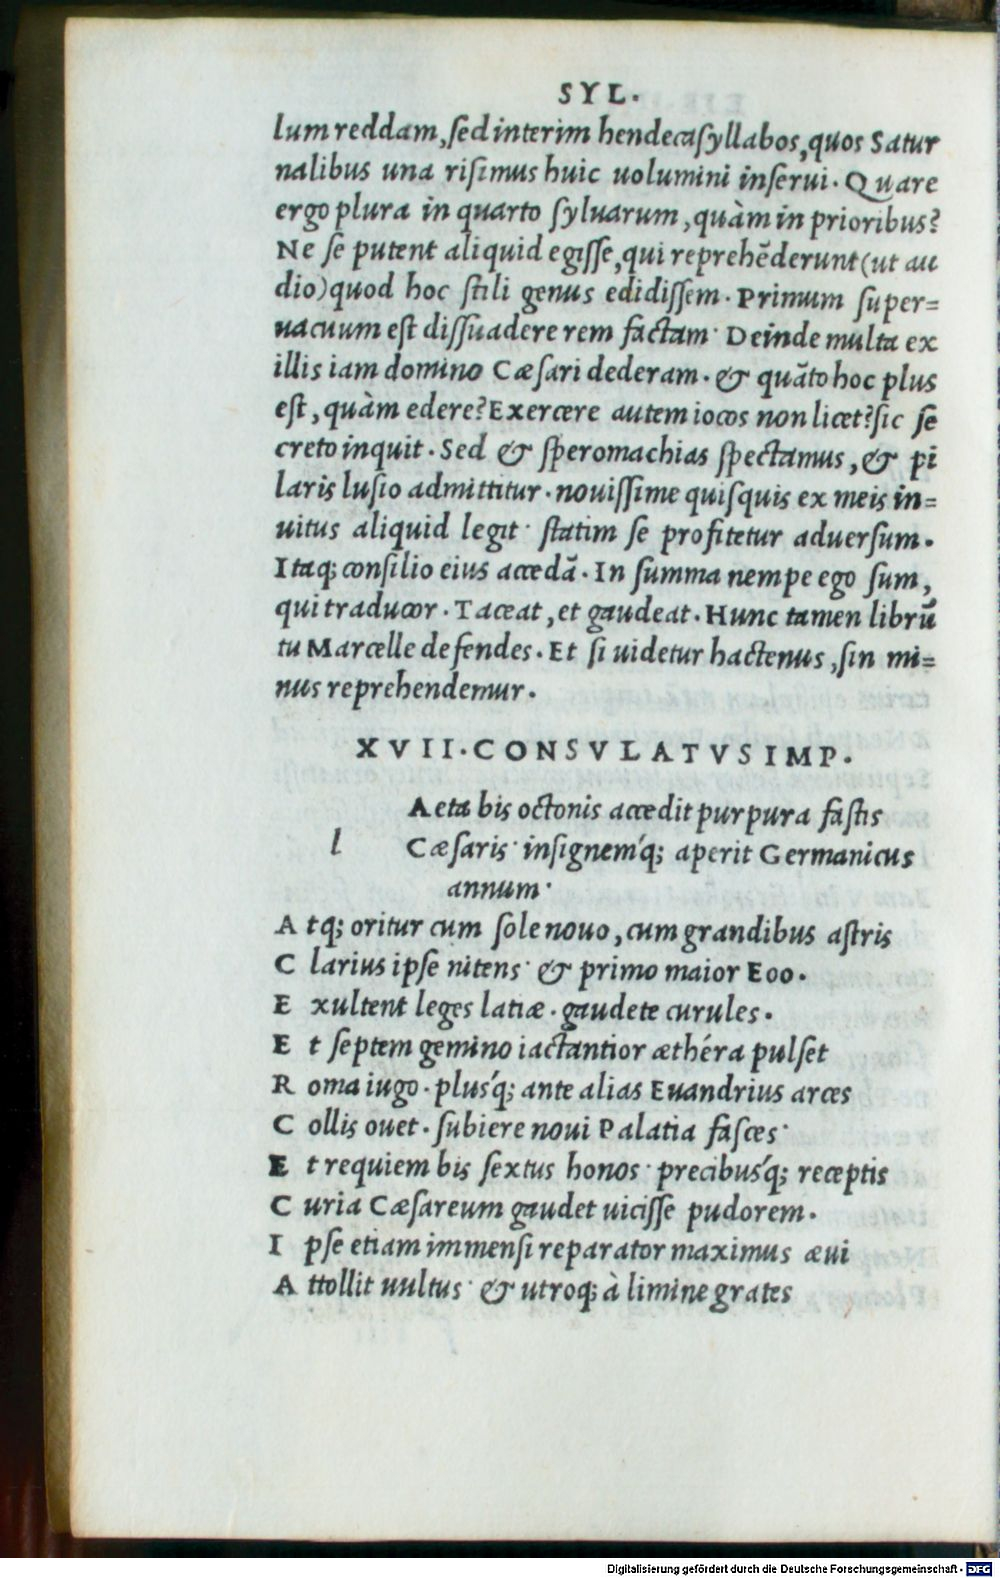 SYL.
lum reddam, sed interim hendecasyllabos, quos Satur
nalibus una risimus huic uolumini inserui. Quare
ergo plura in quarto syluarum, quàm in prioribus?
Ne se putent aliquid egisse, qui reprehẽderunt (ut au
dio) quod hoc stili genus edidissem. Primum super=
uacuum est dissuadere rem factam· Deinde multa ex
illis iam domino Cæsari dederam. & quãto hoc plus
est, quàm edere? Exercere autem iocos non licet? sic se
creto inquit. Sed & speromachias spectamus, & pi
laris lusio admittitur. nouissime quisquis ex meis in=
uitus aliquid legit· statim se profitetur aduersum.
Itaq; consilio eius accedã. In summa nempe ego sum,
qui traducor. Taceat, et gaudeat. Hunc tamen librũ
tu Marcelle defendes. Et si uidetur hactenus, sin mi=
nus reprehendemur.
XVII. CONSVLATVS IMP.
Aeta bis octonis accedit purpura fastis
l Cæsaris· insignemq́; aperit Germanicus
annum·
Atq; oritur cum sole nouo, cum grandibus astris
Clarius ipse nitens· & primo maior Eoo.
Exultent leges latiæ. gaudete curules.
Et septem gemino iactantior æthéra pulset
Roma iugo. plusq́; ante alias Euandrius arces
Collis ouet. subiere noui Palatia fasces·
Et requiem bis sextus honos· precibusq́; receptis
Curia Cæsareum gaudet uicisse pudorem.
Ipse etiam immensi reparator maximus æui
Attollit uultus· & utroq; à limine grates
Digitalisierung gefördert durch die Deutsche Forschungsgemeinschaft - DFG